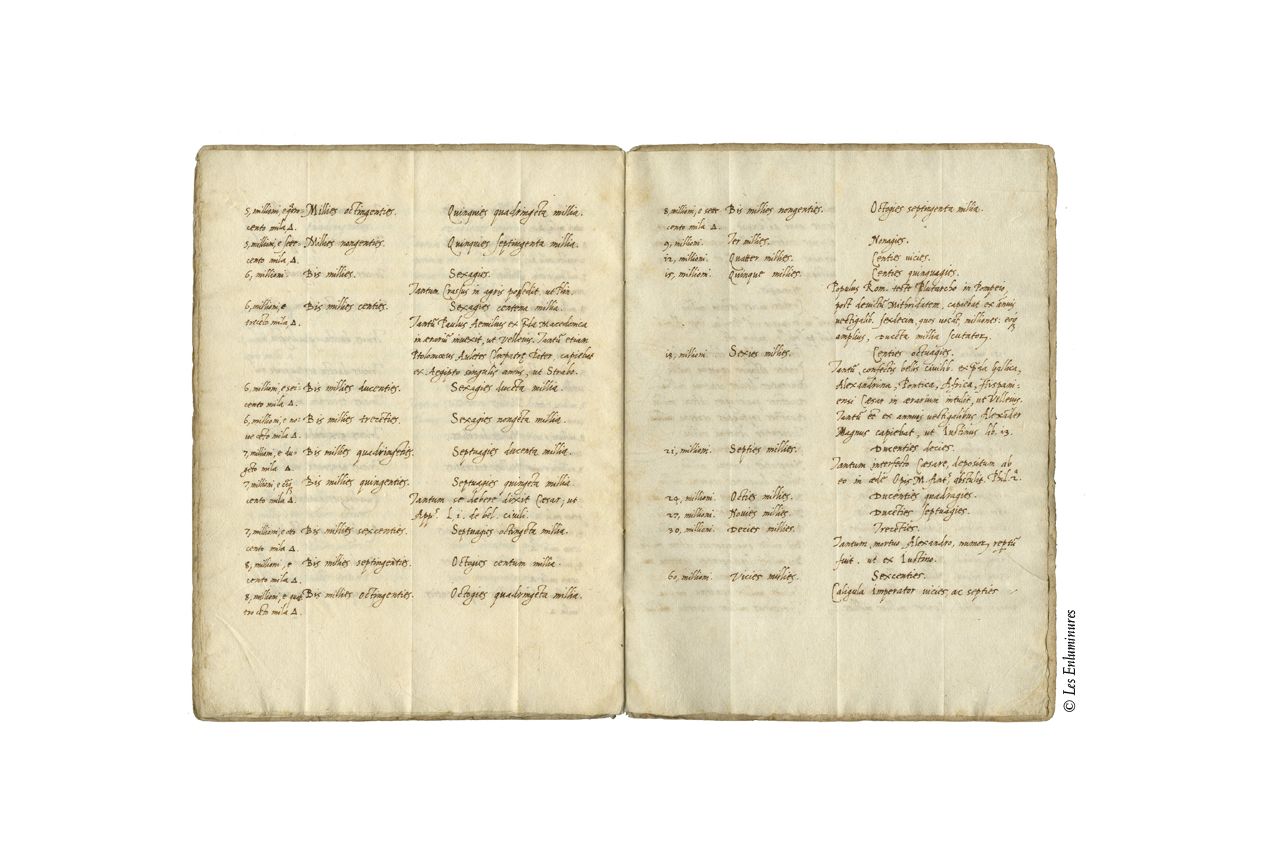 5, millioni, e qtro- Millies octingenties. Quinquies quadringēta millia.
cento mila Δ.
5, millioni, e sette- Millies nongenties. Quinquies septingenta millia.
cento mila Δ.
6, millioni. Bis millies. Sexagies.
Tantum Crassus in agris possedit, ut Plin.
6, millioni, e Bis millies centies. Sexagies centena millia.
trecēto mila Δ. Tantū Paulus Aemilius ex p̄da Macedonica
in ærariū invexit, ut Velleius. Tantū etiam
Ptolomæus Auletes Cleopatræ Pater, capiebat
ex Aegipto singulis annis, ut Strabo.
6, millioni, e sei- Bis millies ducenties. Sexagies ducēta millia.
cento mila Δ.
6, millioni, e no- Bis millies trecēties. Sexagies nongēta millia.
ue cēto mila Δ.
7, millioni, e du- Bis millies quadringēties. Septuagies ducenta millia.
gēto mila Δ.
7, millioni, e Bis millies quingenties. Septuagies quingēta millia.
cento mila Δ. Tantum se debere dixit Cæsar, ut
App. L i. de bel. civili.
7, millioni, e otto Bis millies sexcenties. Septuagies octingēta millia.
cento mila Δ.
8, millioni, e Bis millies septingenties. Octogies centum millia.
cento mila Δ.
8, millioni, e Bis millies octingenties. Octogies quadringēta millia.
tro cēto mila Δ.
8, millioni, e sette Bis millies nongenties. Octogies septingenta millia.
cento mila Δ.
9, millioni. Ter millies. Nonagies.
12, millioni. Quater millies. Centies vicies.
15, millioni. Quinque millies. Centies quinquagies.
Populus Rom. teste Plutarcho in Pompeio,
post devictū Mithridatem, capiebat ex annuis
vectigalib. sexdecim, quos vocāt, milliones: eoq
amplius, ducēta millia scutatorū.
18, millioni. Sexies millies. Centies octuagies.
Tantū, confectis bellis civilib. ex p̄da Gallica,
Alexandrina, Pontica, Africa, Hispani-
ensi Cæsar in ærarium intulit, ut Velleius.
Tantū et ex annuis vectigalibus Alexāder
Magnus capiebat, ut Iustinus lib. 13.
21, millioni. Septies millies. Ducenties decies.
Tantum interfecto Cæsare, depositum ab
eo in æde Opis M. Ant. abstulit. Phil. 2.
24, millioni. Octies millies. Ducenties quadragies.
27, millioni. Novies millies. Ducēties septuagies.
30, millioni. Decies millies. Trecēties.
Tantum, mortuo Alexandro, numor, reptū
fuit. ut ex Iustino.
60, millioni. Vicies millies. Sexcenties.
Caligula Imperator vicies, ac septies
© Les Enluminures